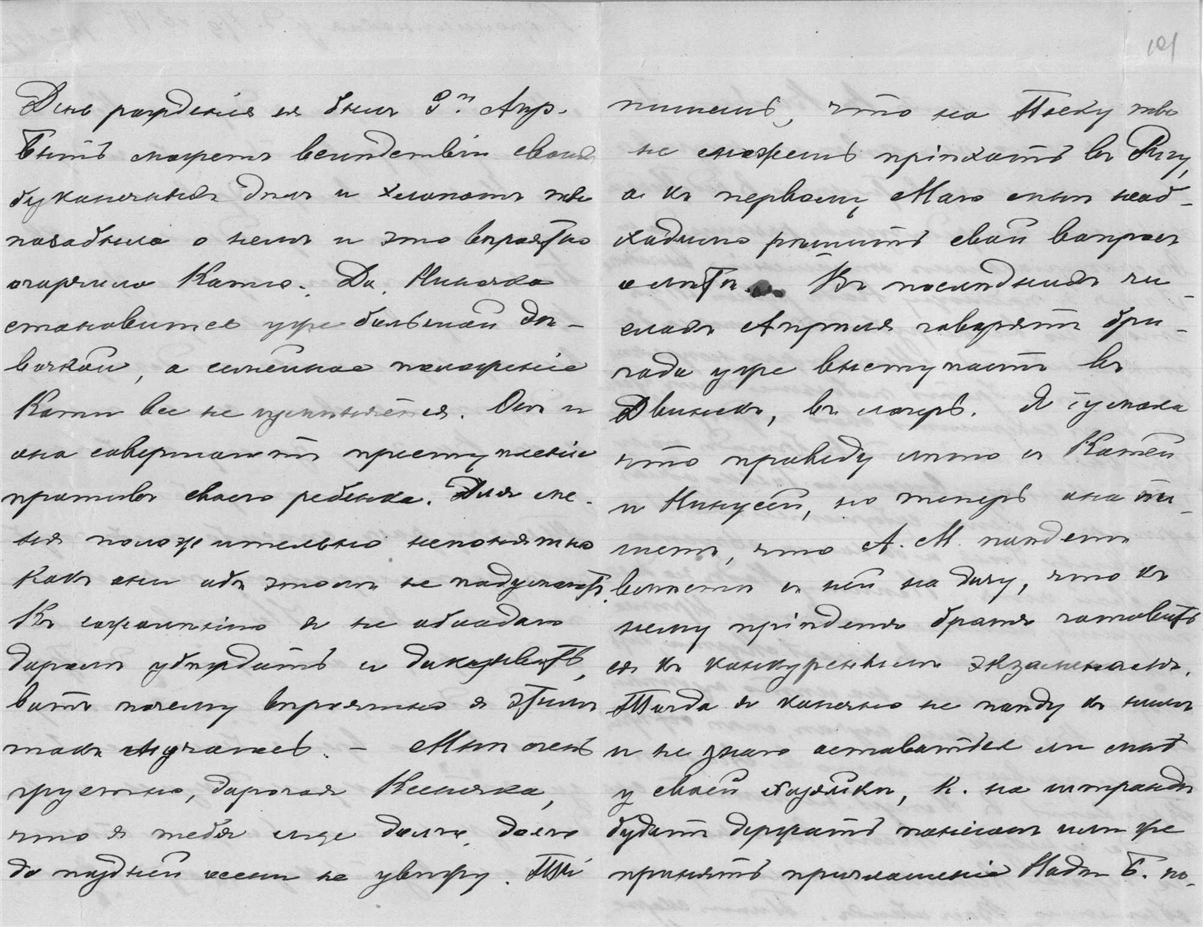 День рожденія ея былъ 9го Апр.
Быть можетъ вслѣдствіи своихъ
безконечныхъ дѣлъ и хлопотъ ты
позабыла о немъ и это вѣроятно
огорчило Катю. Да, Ниночка
становится уже большой дѣ-
вочкой, а семейное положеніе
Кати все не измѣняется. Онъ и
она совершаютъ преступленіе
противъ своего ребенка. Для ме-
ня положительно непонятно
какъ они объ этомъ не подумаютъ.
Къ сожалѣнію я не обладаю
даромъ убѣждать и доказывать,
вотъ почему вѣроятно я этимъ
такъ мучаюсь. – Мнѣ очень
грустно, дорогая
что я тебя еще долго, долго
до поздней осени не увижу. Ты
101
пишешь, что на Пасху ты
не сможешь пріѣхать въ Ригу,
а къ первому Маю мнѣ необ-
ходимо рѣшить свой вопросъ
о лѣтѣ. Въ послѣднихъ чи-
слахъ Апрѣля говорятъ бри-
гада уже выступаетъ въ
Двинскъ, въ лагерь. Я думала
что проведу лѣто съ Катей
и Нинусей, но теперь она пи-
шетъ, что А. М. поѣдетъ
вмѣстѣ съ ней на дачу, что къ
нему пріѣдетъ братъ готовить
ся къ конкурснымъ экзаменамъ.
Тогда я конечно не поѣду къ нимъ
и не знаю оставаться ли мнѣ
у своей хозяйки, К. на штрандѣ
будетъ держать пансіонъ или же
принять приглашеніе Нади Б. по-